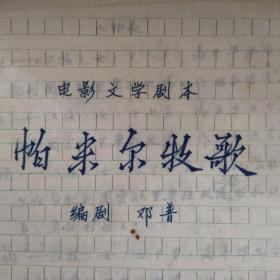 电影文学剧本
帕米尔牧歌
编剧 邓普